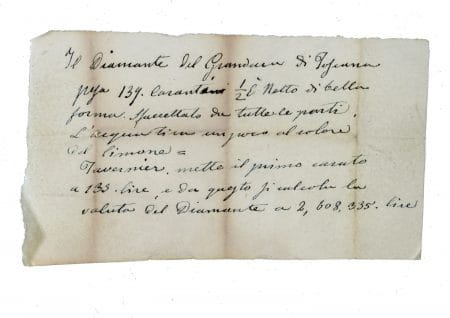 Il Diamante del Granduca di Toscana
pesa 139. Carantini 1/2 È Netto di bella
forma. Sfaccettato da tutte le parti.
L'acqua tira un poco al colore
del limone =
Tavernier, mette il primo carato
a 135 lire, e da questo si calcola la
valuta del Diamante a 2,608,335. lire